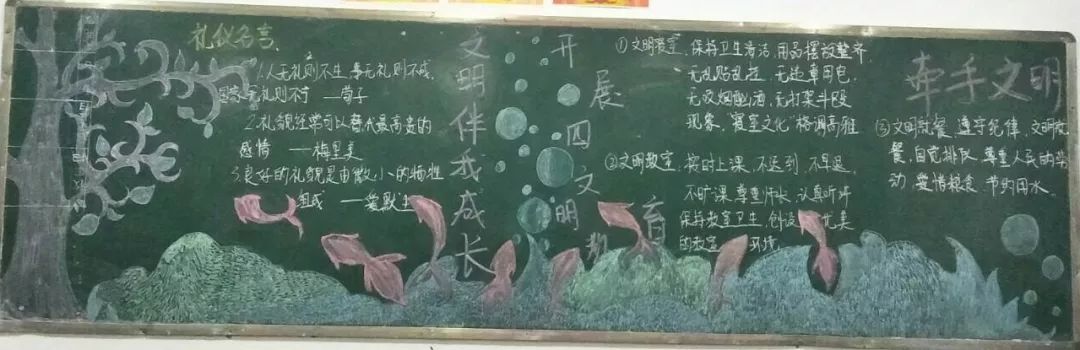 礼仪名言
1.人无礼则不生,事无礼则不成,
国家无礼则不宁 ——荀子
2.礼貌经常可以替代最高贵的
感情 ——梅里美
3.良好的礼貌是由微小的牺牲
组成 ——爱默生
文明伴我成长
开展四文明教育
①文明寝室,保持卫生清洁,用品摆放整齐,
无乱贴乱挂 无违章用电,
无吸烟酗酒,无打架斗殴
现象,“寝室文化”格调高雅
②文明教室,按时上课,不迟到,不早退,
不旷课 尊重师长,认真听讲
保持教室卫生,创设 优美
的教室 环境.
牵手文明
③文明就餐 遵守纪律,文明就
餐,自觉排队 尊重人民的劳
动 爱惜粮食 节约用水.